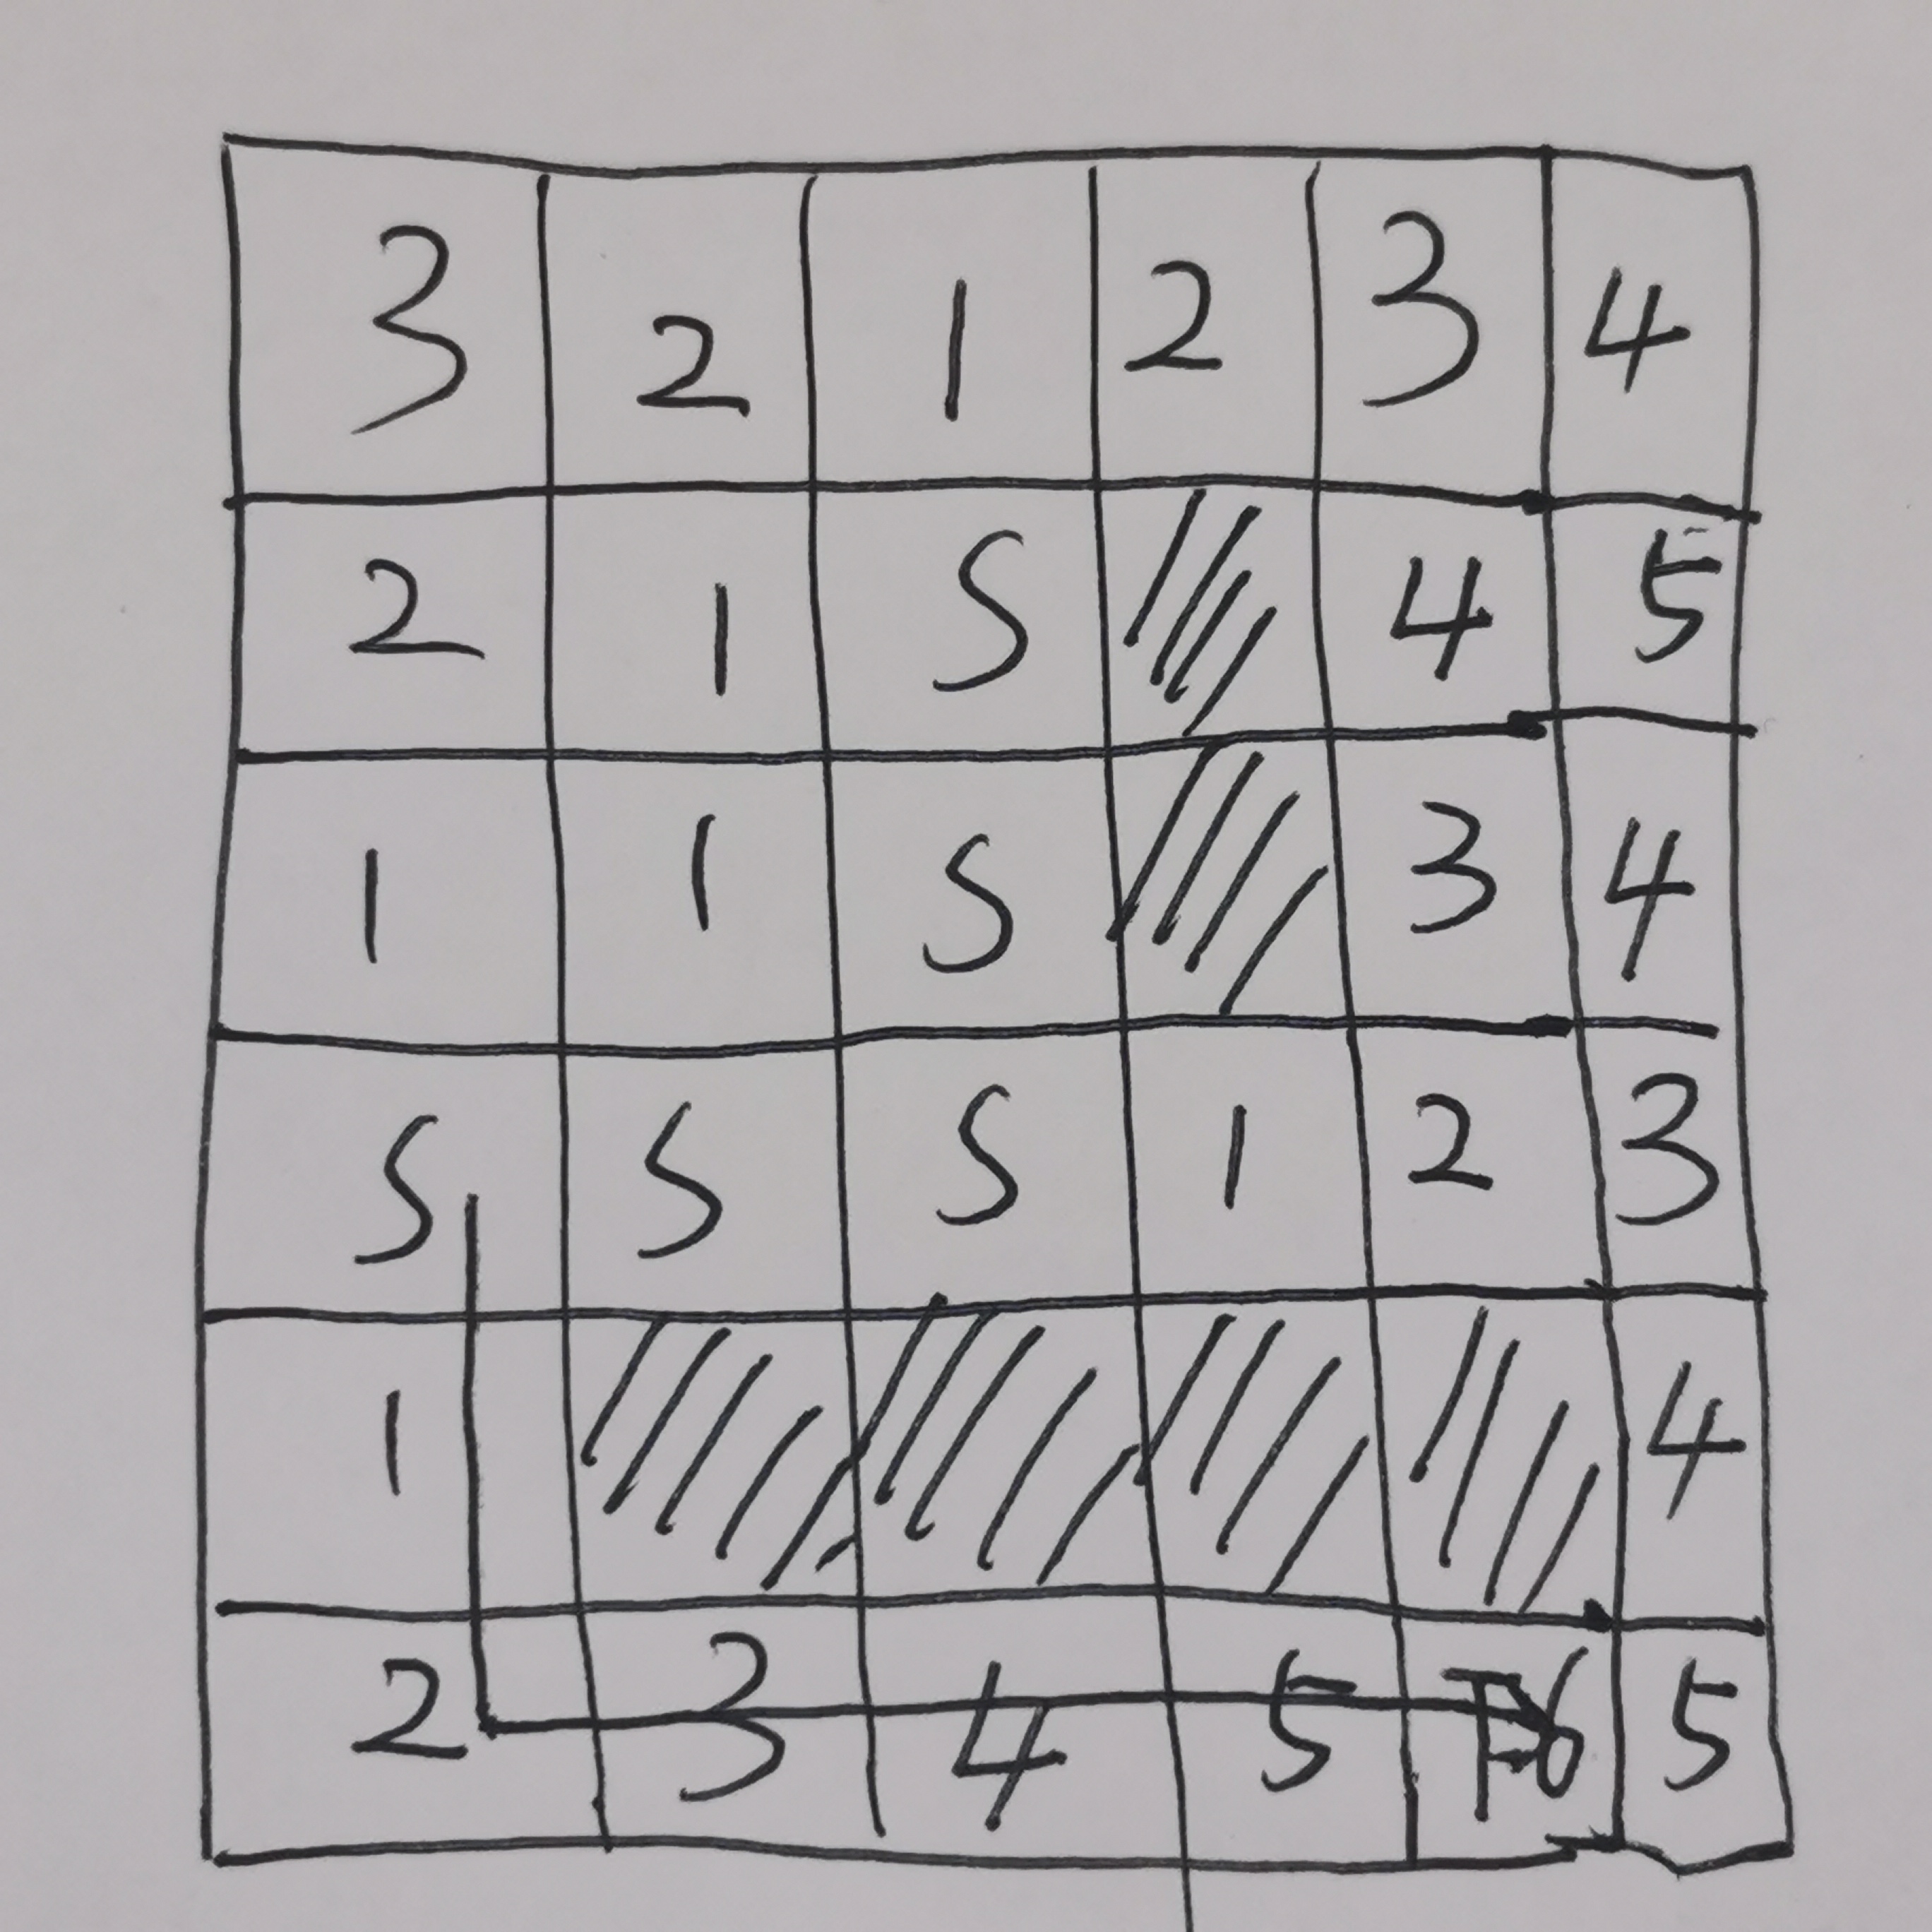 3 2 1 2 3 4
2 1 S 4 5
1 1 S 3 4
S S S 1 2 3
1 4
2 3 4 5 T6 5